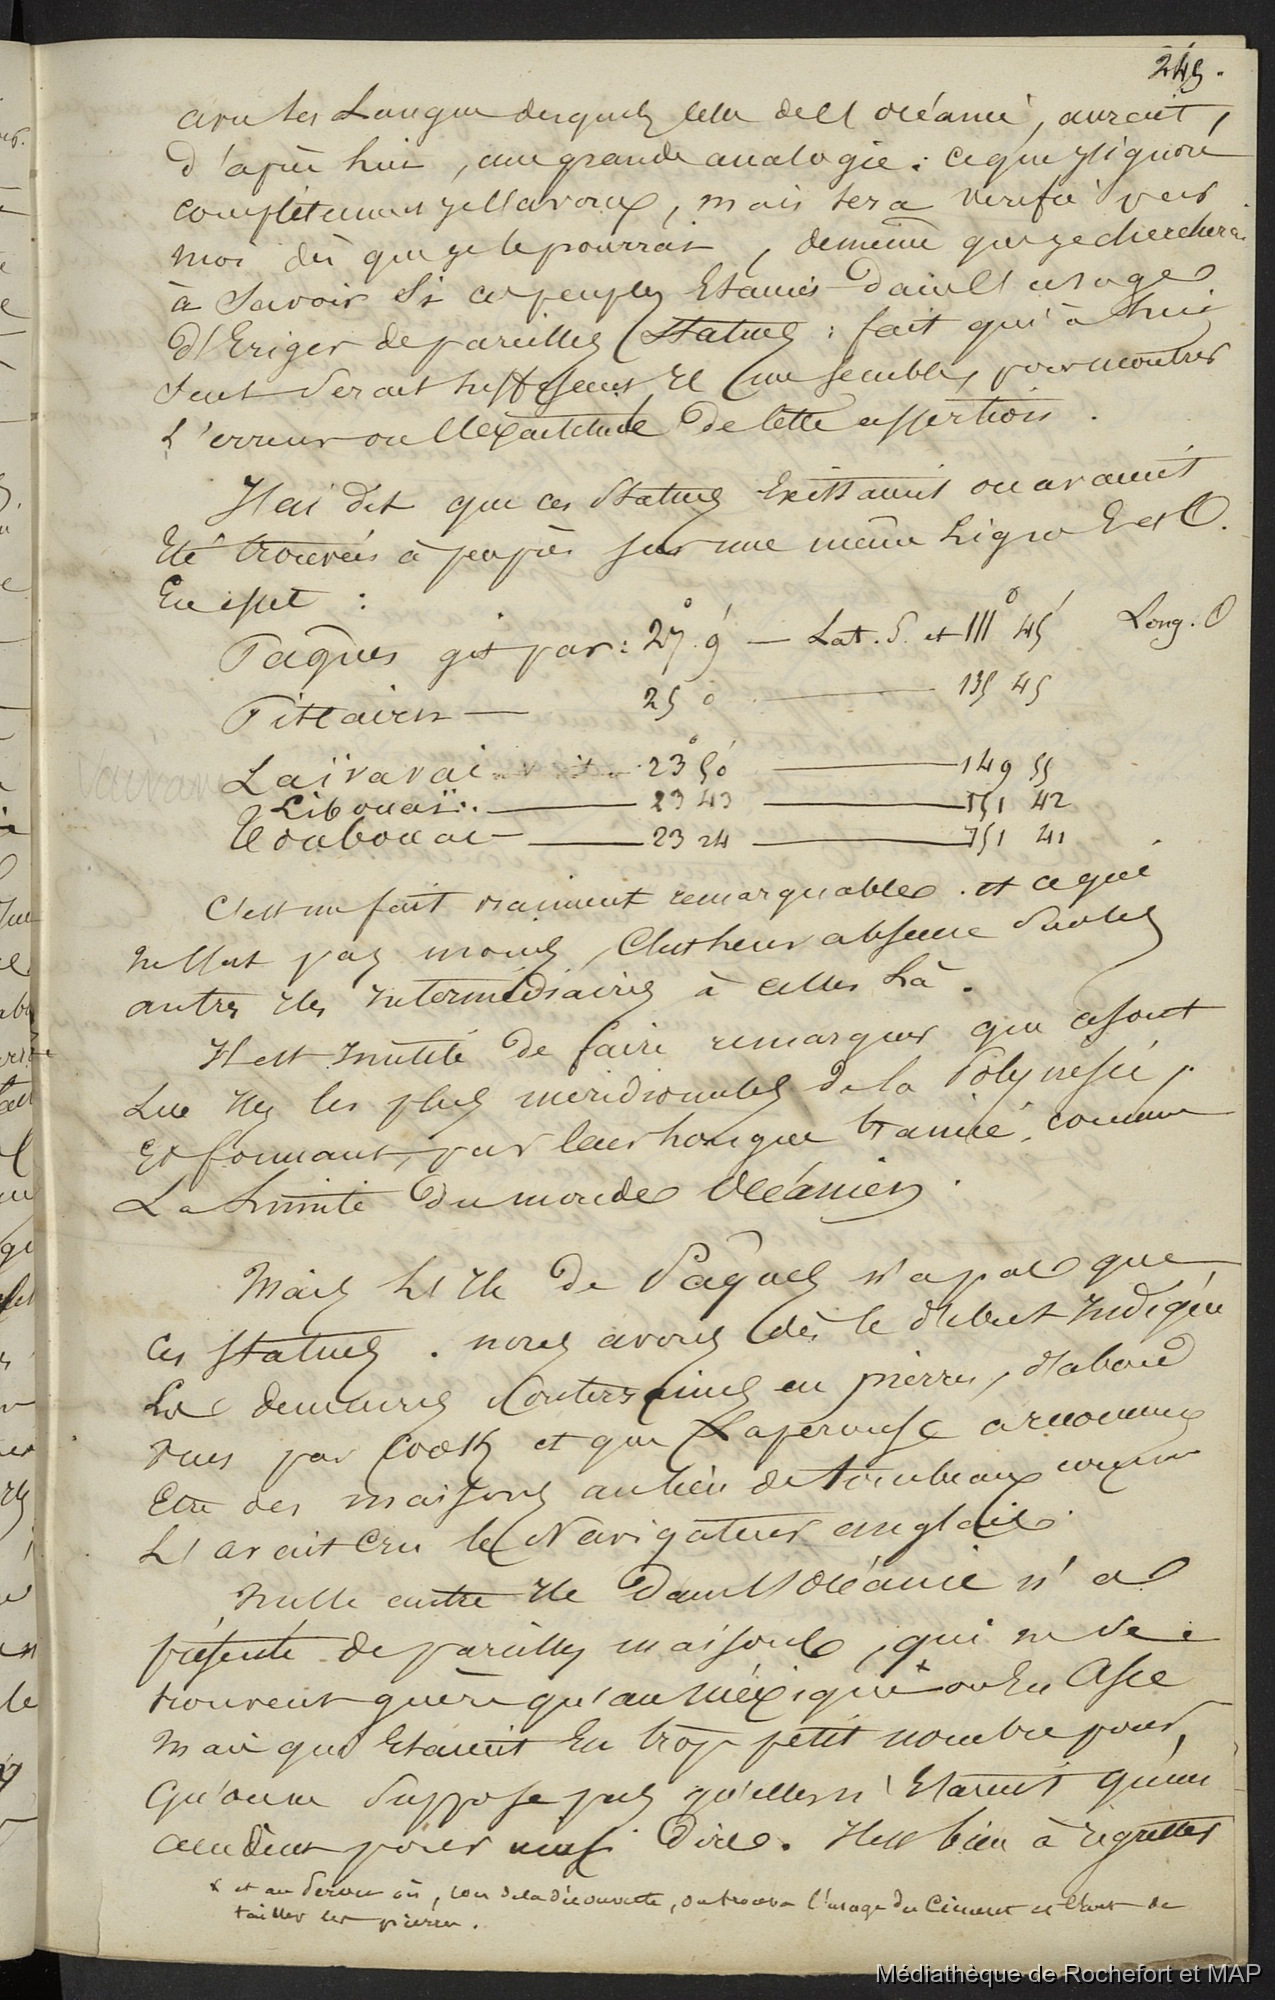 245.
avec les Langues desquels celle de l'Océanie, aurait,
d'après lui, une grande analogie: ce que j'ignore
complètement je l'avoue, mais sera vérifié par
moi dès que je le pourrai, de même que je chercherai
à Savoir Si ces peuples Etaient Dans l'usage
d'Eriger de pareilles Statues: fait qui à lui
Seul Serait suffisant Il me semble, pour montrer
L'erreur ou l'Exactitude De cette assertion.
J'ai dit que ces Statues Existaient ou avaient
Eté trouvées à peu près sur une même Ligne E et O.
En effet:
Pâques gît par: 27° 9' — Lat. S. et 111° 45' Long. O
Pitcairn — 25 0 — 135 45
Laïvavai — 23° 50' — 149 55
Libouaï: — 23 43 — 151 42
Toubouai — 23 24 — 151 41
C'est un fait vraiment remarquable. et ce qui
ne l'est pas moins, C'est leur absence Sur les
autres Iles Intermédiaires à celles Là.
Il est Inutile De faire remarquer que ce sont
Les Iles les plus méridionales de la Polynésie,
Et formant, par leur longue trainée, comme
La Limite Du monde Océanien.
Mais L'Ile De Pâques n'a pas que
Ces Statues. nous avons dès le début Indiqué
Les demeures Souterraines en pierres, d'abord
vues par Cook et que Laperouse a reconnu
Etre des maisons au lieu de tombeaux comme
L'avait Cru le Navigateur anglais.
Nulle autre Ile Dans l'Océanie n'a
présenté de pareilles maisons, qui ne se
trouvent guère qu'au Méxique x ou En Asie
Mais qui Etaient En trop petit nombre pour,
Qu'on ne Suppose pas qu'elles n'Etaient qu'un
accident pour ainsi Dire. Il est bien à regretter
x et au Pérou où, lors de la découverte, on trouva l'usage du Ciment et l'art de
tailler les pierres.
Médiathèque de Rochefort et MAP